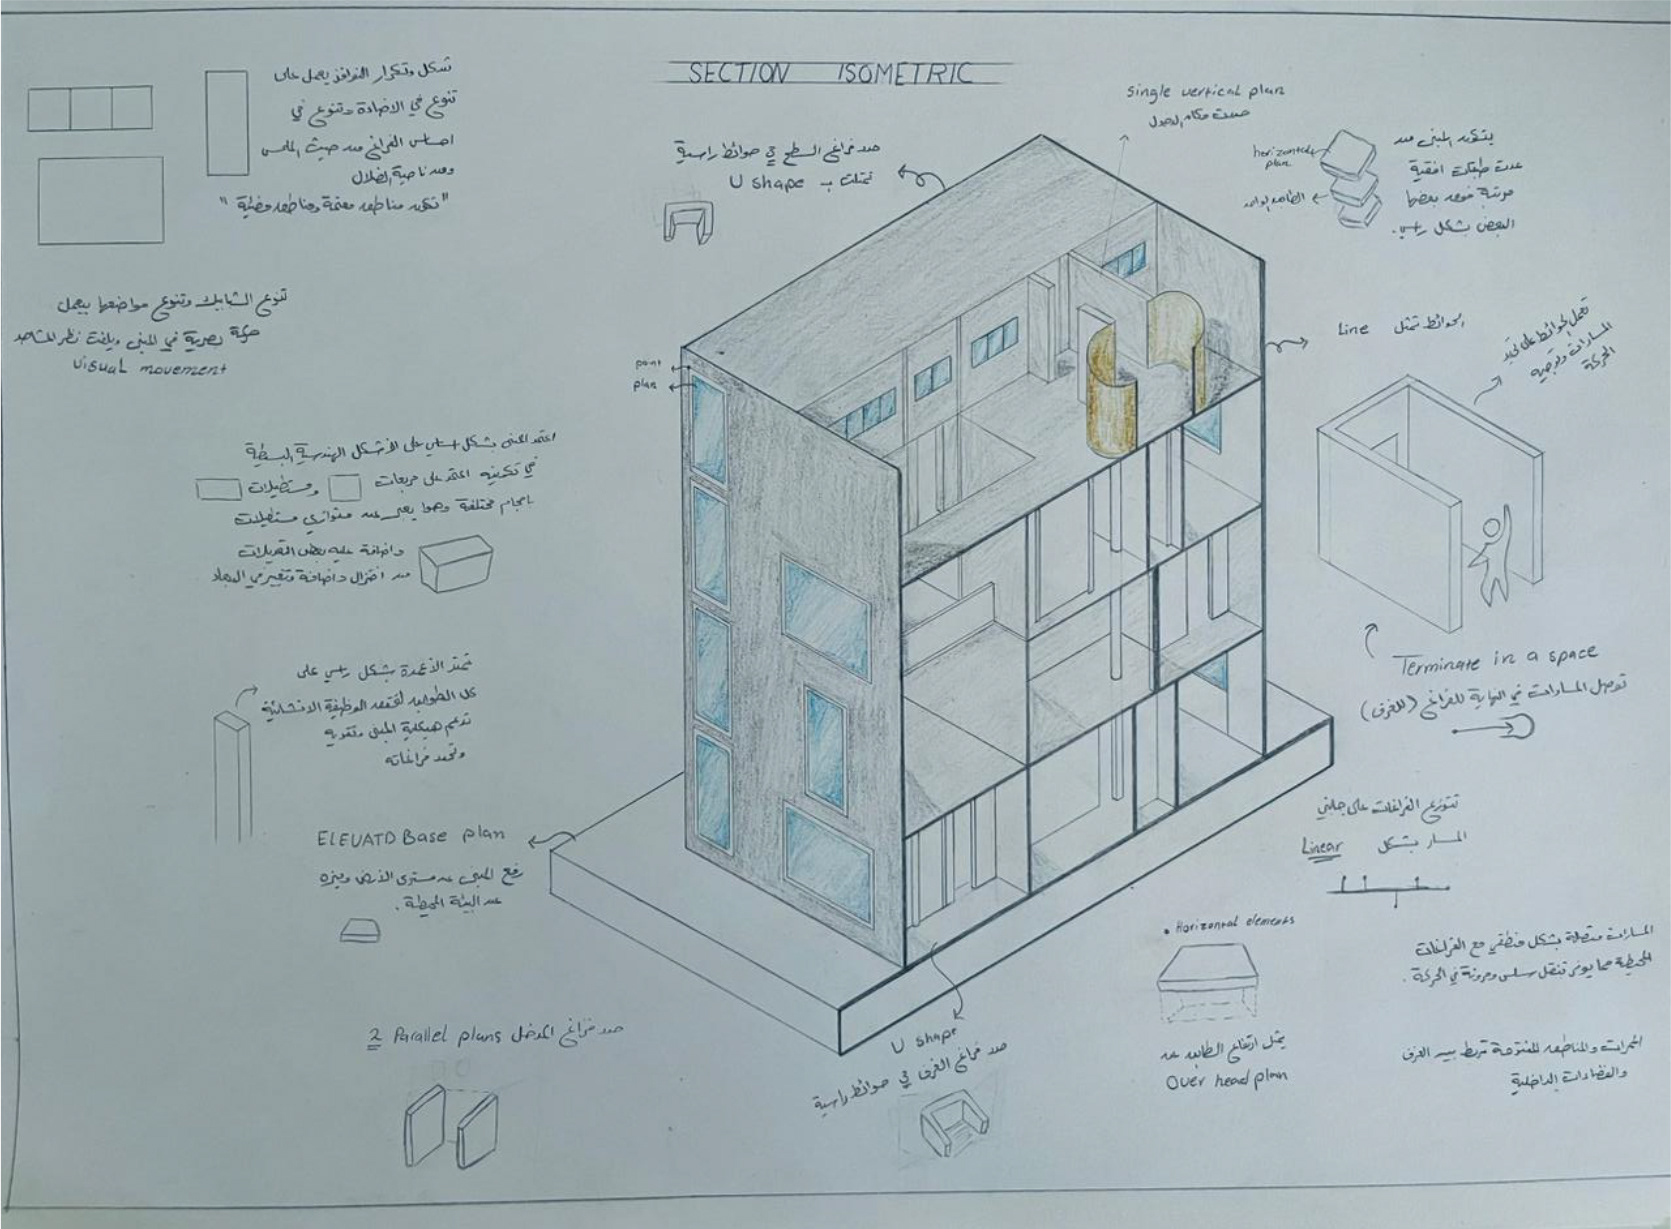 SECTION ISOMETRIC
تشكل وتكرار النوافذ يعمل على
تنوع في الاضاءة وتنوع في
احساس الفراغ من حيث الملمس
ومن ناحية الضلال
"تكون مناطق معتمة ومناطق مضيئة"
تنوع الشبابيك وتنوع مواضعها بيعمل
حركة بصرية في المبنى ويلفت نظر المشاهد
Visual movement
اعتمد المبنى بشكل اساسي على الأشكل الهندسية البسيطة
في تكوينه اعتمد على مربعات ومستطيلات
باحجام مختلفة وهوا يعبر عن متوازي مستطيلات
واضافة عليه بعض التعديلات
من اختزال واضافة وتغيير في الابعاد
تمتد الأعمدة بشكل رأسي على
كل الطوابق لتحقق الوظيفة الانشائية
تدعم هيكلية المبنى وتقويه
وتحدد فراغاته
ELEVATD Base plan
رفع المبنى عن مستوى الأرض وميزه
عن البيئة المحيطة.
2 Parallel plans حدد فراغ المدخل
حدد فراغ السطح في حوائط راسية
تمثلت ب U shape
point
plan
single vertical plan
horizontal plan
يتكون المبنى من
عدت طبقات افقية
مرتبة فوق بعضها
البعض بشكل راسي.
الطابق الواحد
Line الحوائط تمثل
تعمل الحوائط على تحديد
المسارات وتوجيه
الحركة
Terminate in a space
توصل المسارات في النهاية للفراغ (للغرف)
تتوزع الفراغات على جانبي
المسار بشكل Linear
المسارات متصلة بشكل منطقي مع الفراغات
المحيطة مما يوفر تنقل سلس ومرونة في الحركة.
الممرات والمناطق المفتوحة تربط بين الغرف
والفضاءات الداخلية
• Horizontal elements
يمثل ارتفاع الطابق عن
Over head plan
U shape
حدد فراغ الغرف في حوائط راسية